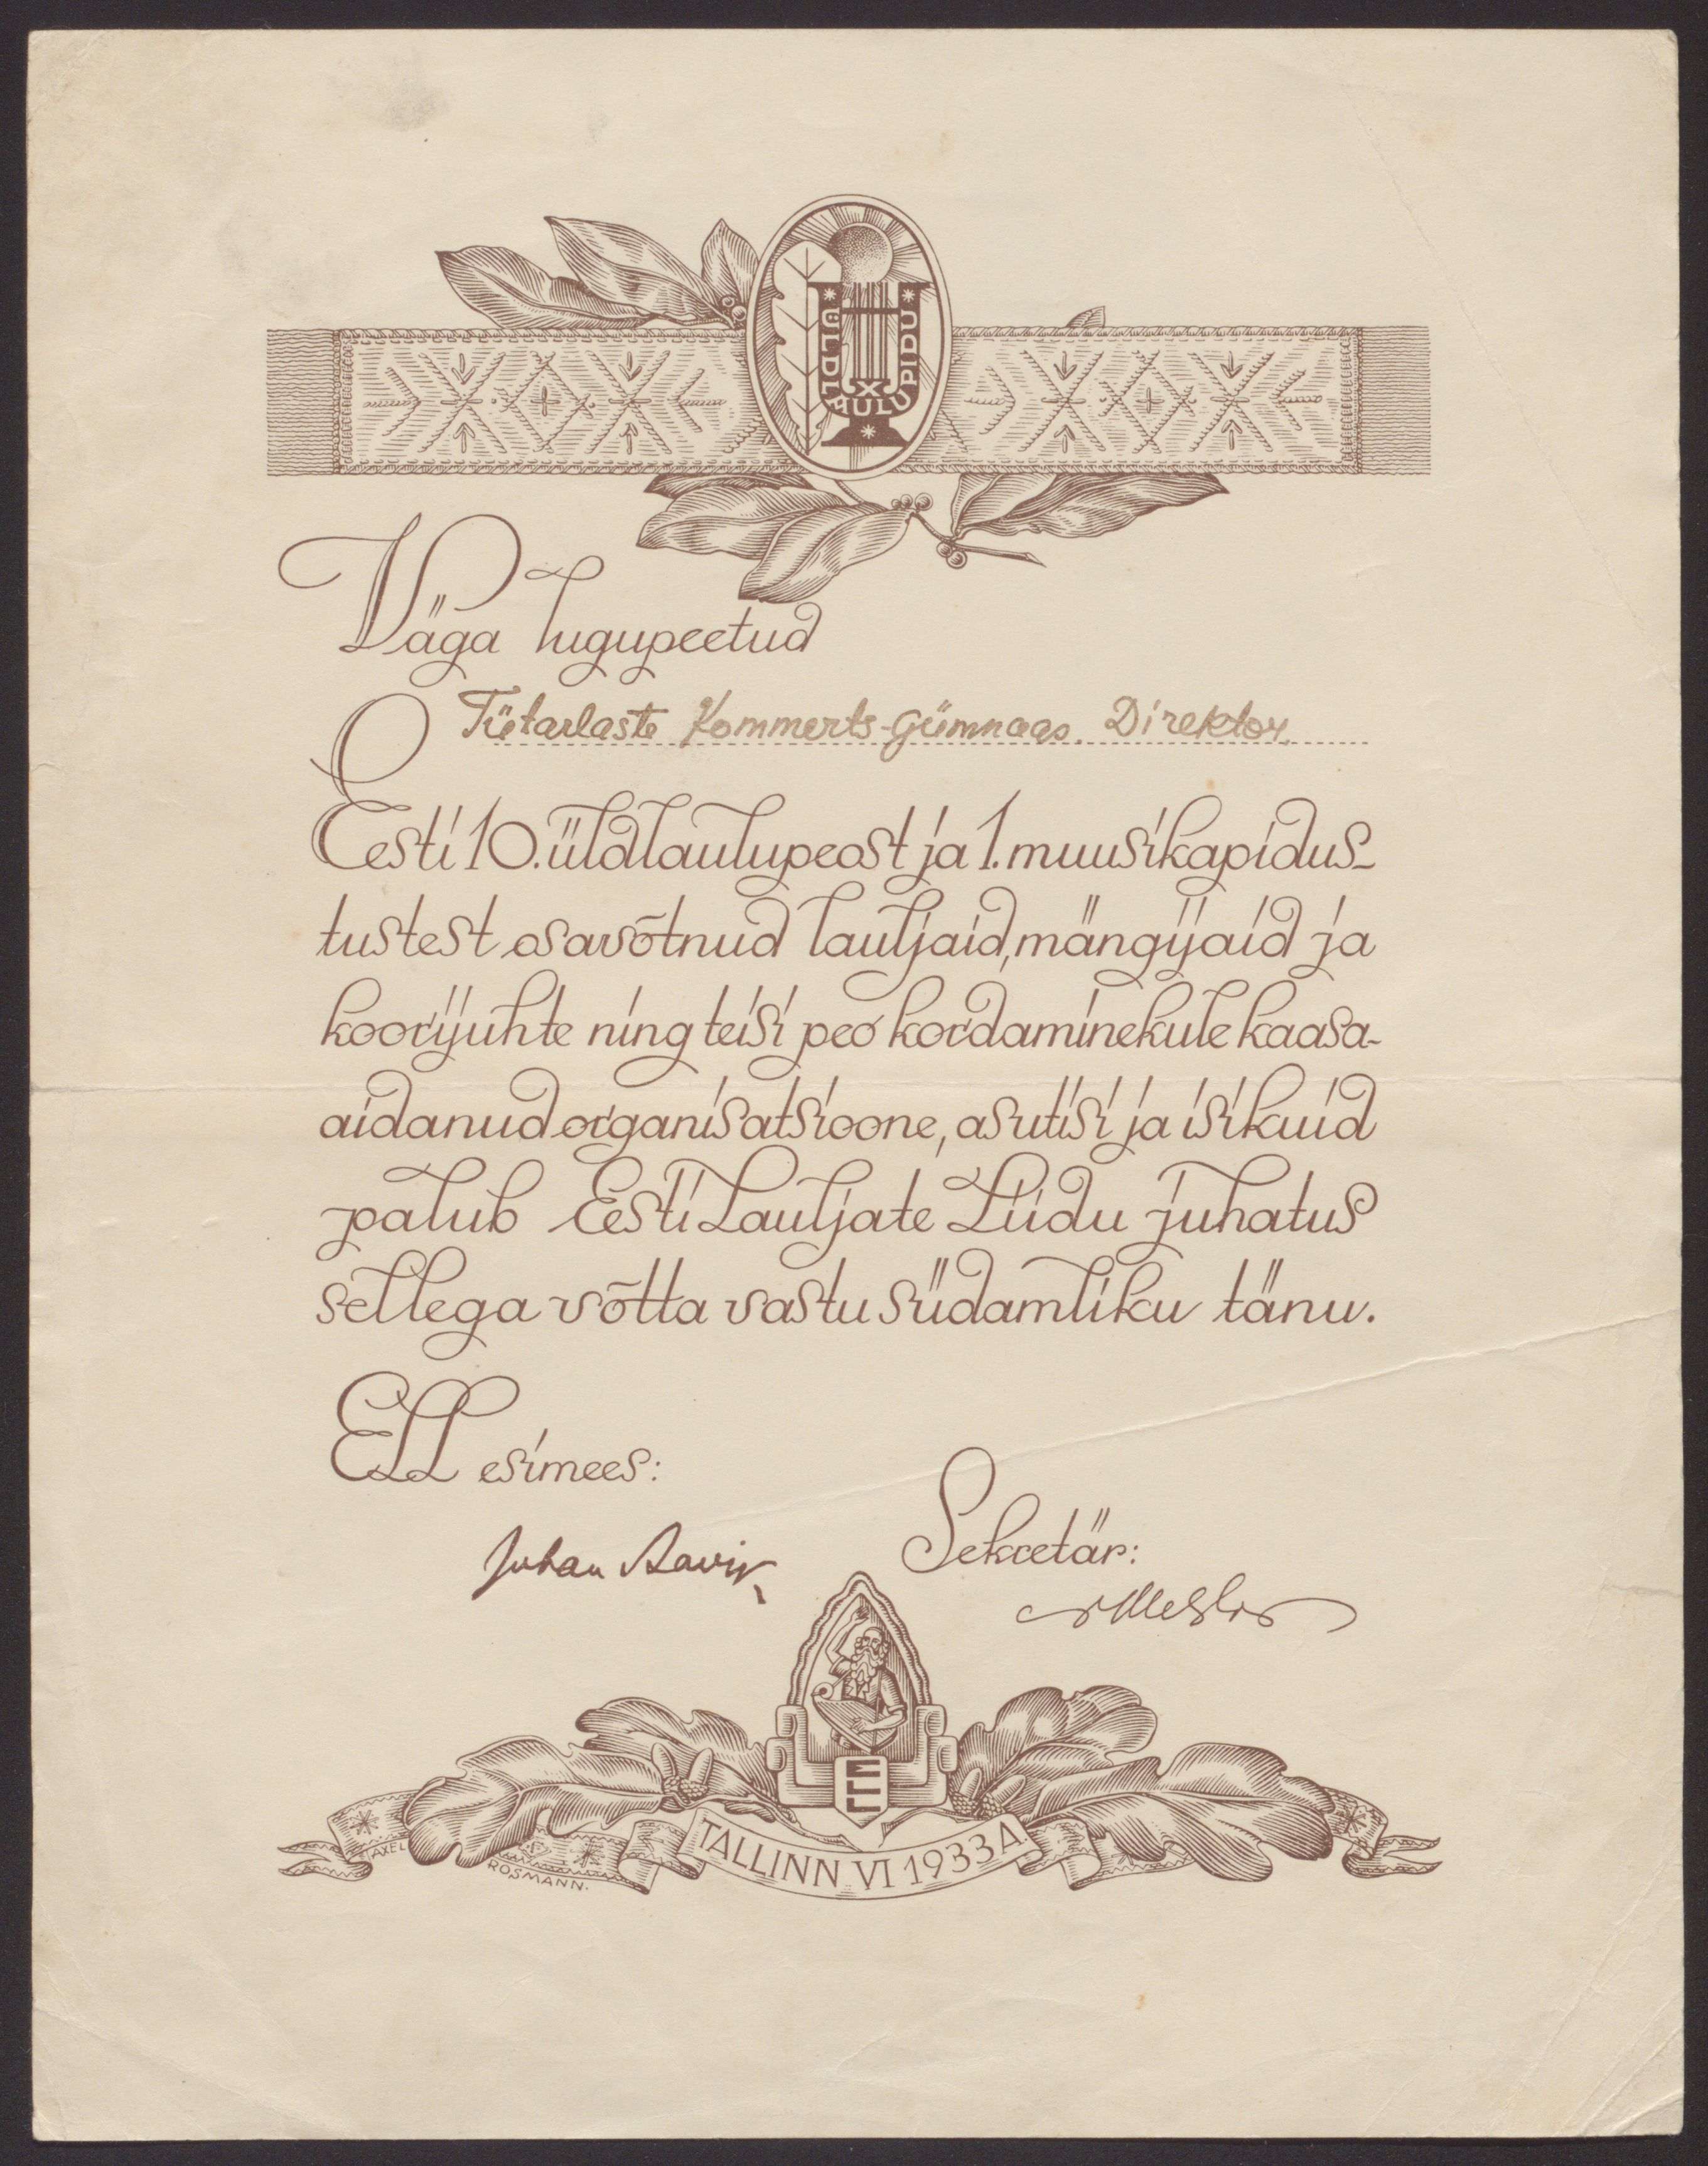 ÜLDLAULUPIDU
X
Väga lugupeetud
Tütarlaste Kommerts-Gümnaas. Direktor.
Eesti 10. üldlaulupeost ja 1. muusikapidus-
tustest osavõtnud lauljaid, mängijaid ja
koorijuhte ning teisi peo kordaminekule kaasa-
aidanud organisatsioone, asutisi ja isikuid
palub Eesti Lauljate Liidu juhatus
sellega võtta vastu südamliku tänu.
ELL esimees:
Juhan Aavik
Sekretär:
ELL
TALLINN VI 1933 A
AXEL
ROSMANN.